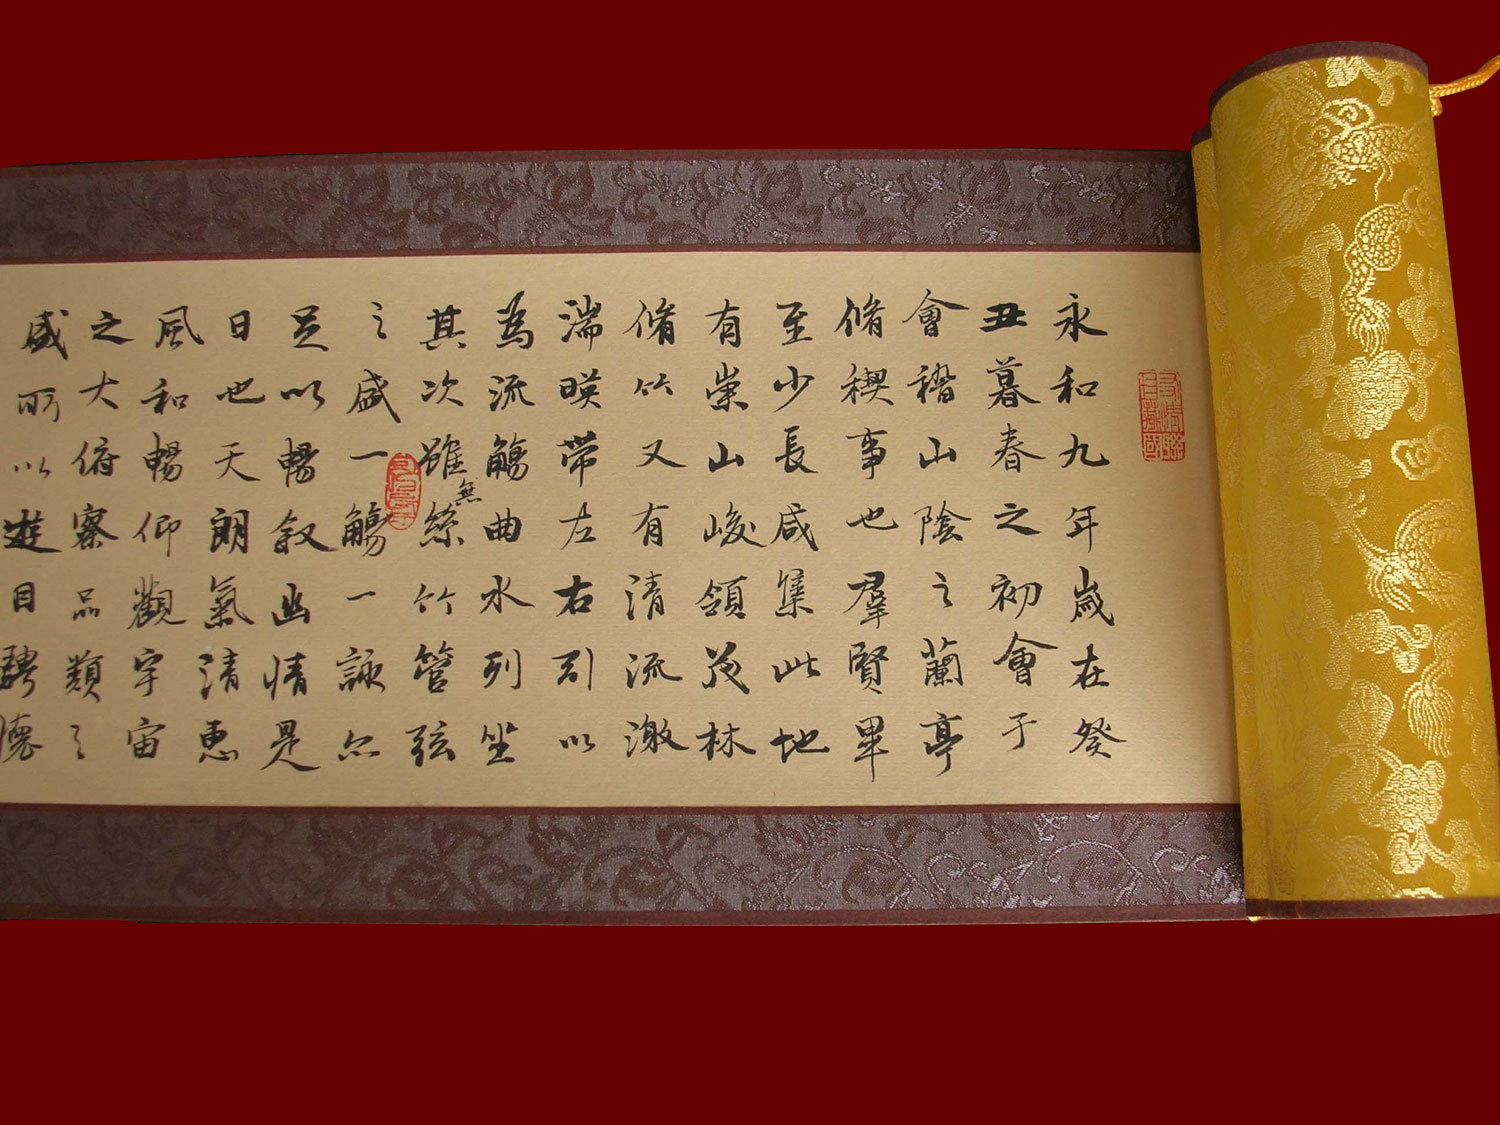 永和九年歲在癸
丑暮春之初會于
會稽山陰之蘭亭
脩稧事也羣賢畢
至少長咸集此地
有崇山峻領茂林
脩竹又有清流激
湍暎帶左右引以
為流觴曲水列坐
其次雖無絲竹管弦
之盛一觴一詠亦
足以暢叙幽情是
日也天朗氣清惠
風和暢仰觀宇宙
之大俯察品類之
盛所以遊目騁懷